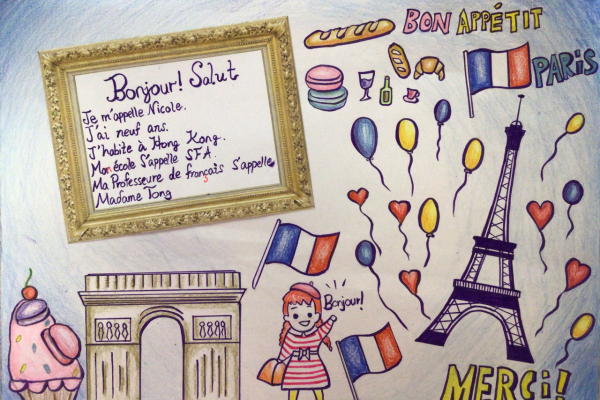 BON APPÉTIT
PARIS
Bonjour! Salut
Je m'appelle Nicole.
J'ai neuf ans.
J'habite à Hong Kong.
Mon école s'appelle SFA.
Ma Professeure de français s'appelle
Madame Tong
Bonjour!
MERCi!